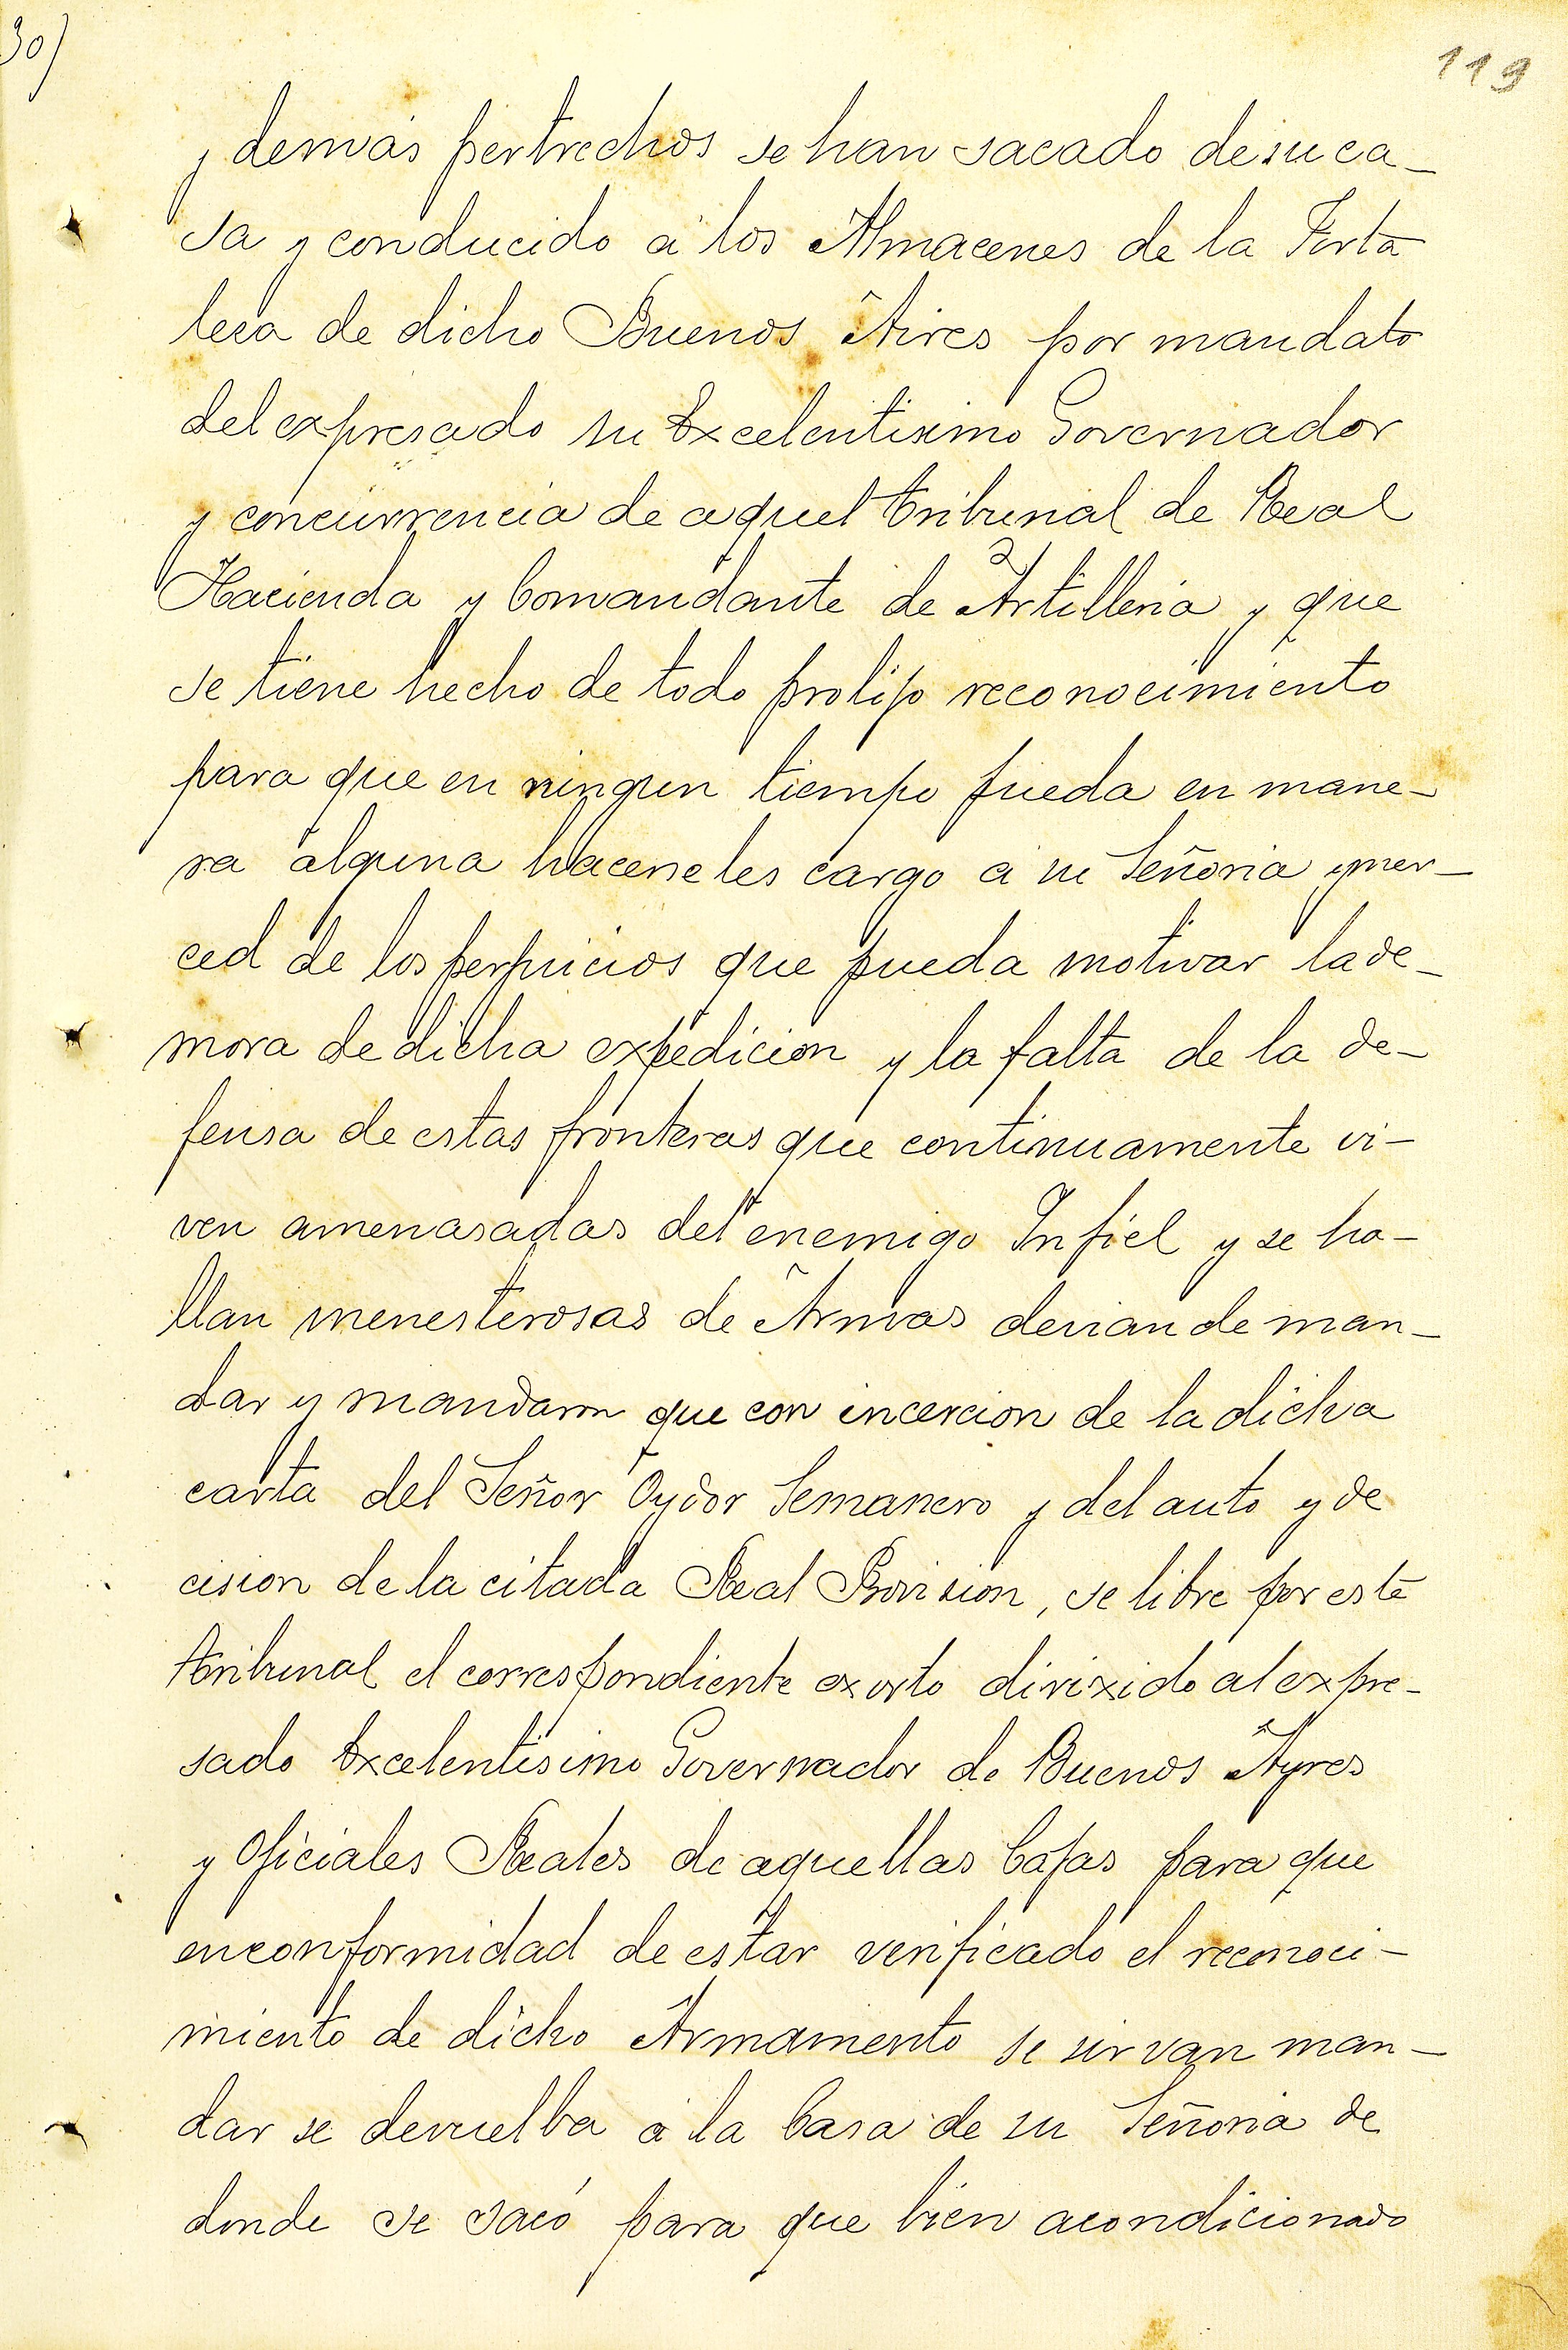 30)
119
y demás pertrechos se han sacado de su ca-
sa y conducido á los Almacenes de la Forta
leza de dicho Buenos Aires por mandato
del expresado su Excelentisimo Governador
y concurrencia de aquel tribunal de Real
Hacienda y Comandante de Artilleria y que
se tiene hecho de todo prolijo reconocimiento
para que en ningun tiempo pueda en mane-
ra alguna hacerseles cargo á su Señoria y mer-
ced de los perjuicios que pueda motivar la de-
mora de dicha expedicion y la falta de la de-
fensa de estas fronteras que continuamente vi-
ven amenasadas del enemigo Infiel y se ha-
llan menesterosas de Armas devian de man-
dar y mandaron que con incercion de la dicha
carta del Señor Oydor Semanero y del auto y de
cision de la citada Real Provision, se libre por este
tribunal el correspondiente exorto dirixido al expre-
sado Excelentisimo Governador de Buenos Ayres
y Oficiales Reales de aquellas Cajas para que
en conformidad de estar verificado el reconoci-
miento de dicho Armamento se sirvan man-
dar se devuelba á la Casa de su Señoria de
donde se sacó para que bien acondicionado